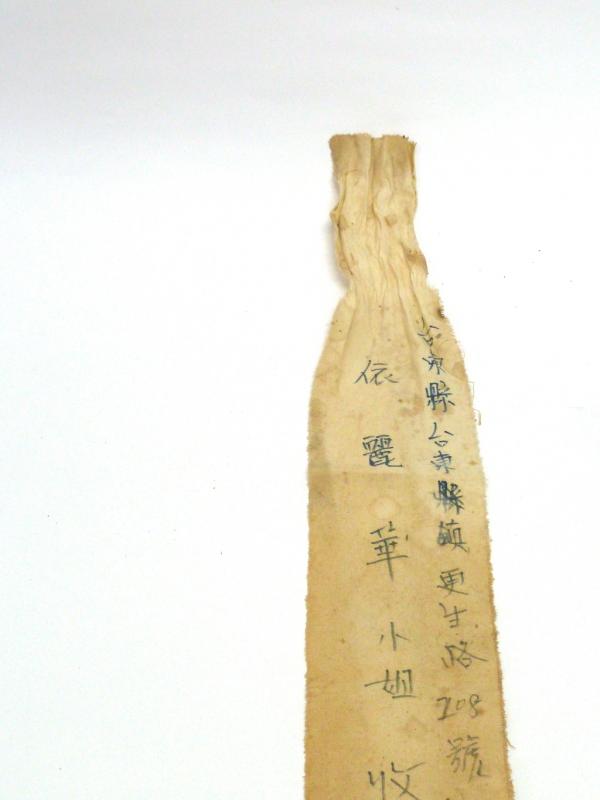 台東縣台東縣鎮更生路208號
依麗華小姐收